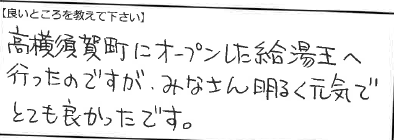 【良いところを教えて下さい】
高横須賀町にオープンした給湯王へ
行ったのですが、みなさん明るく元気で
とても良かったです。